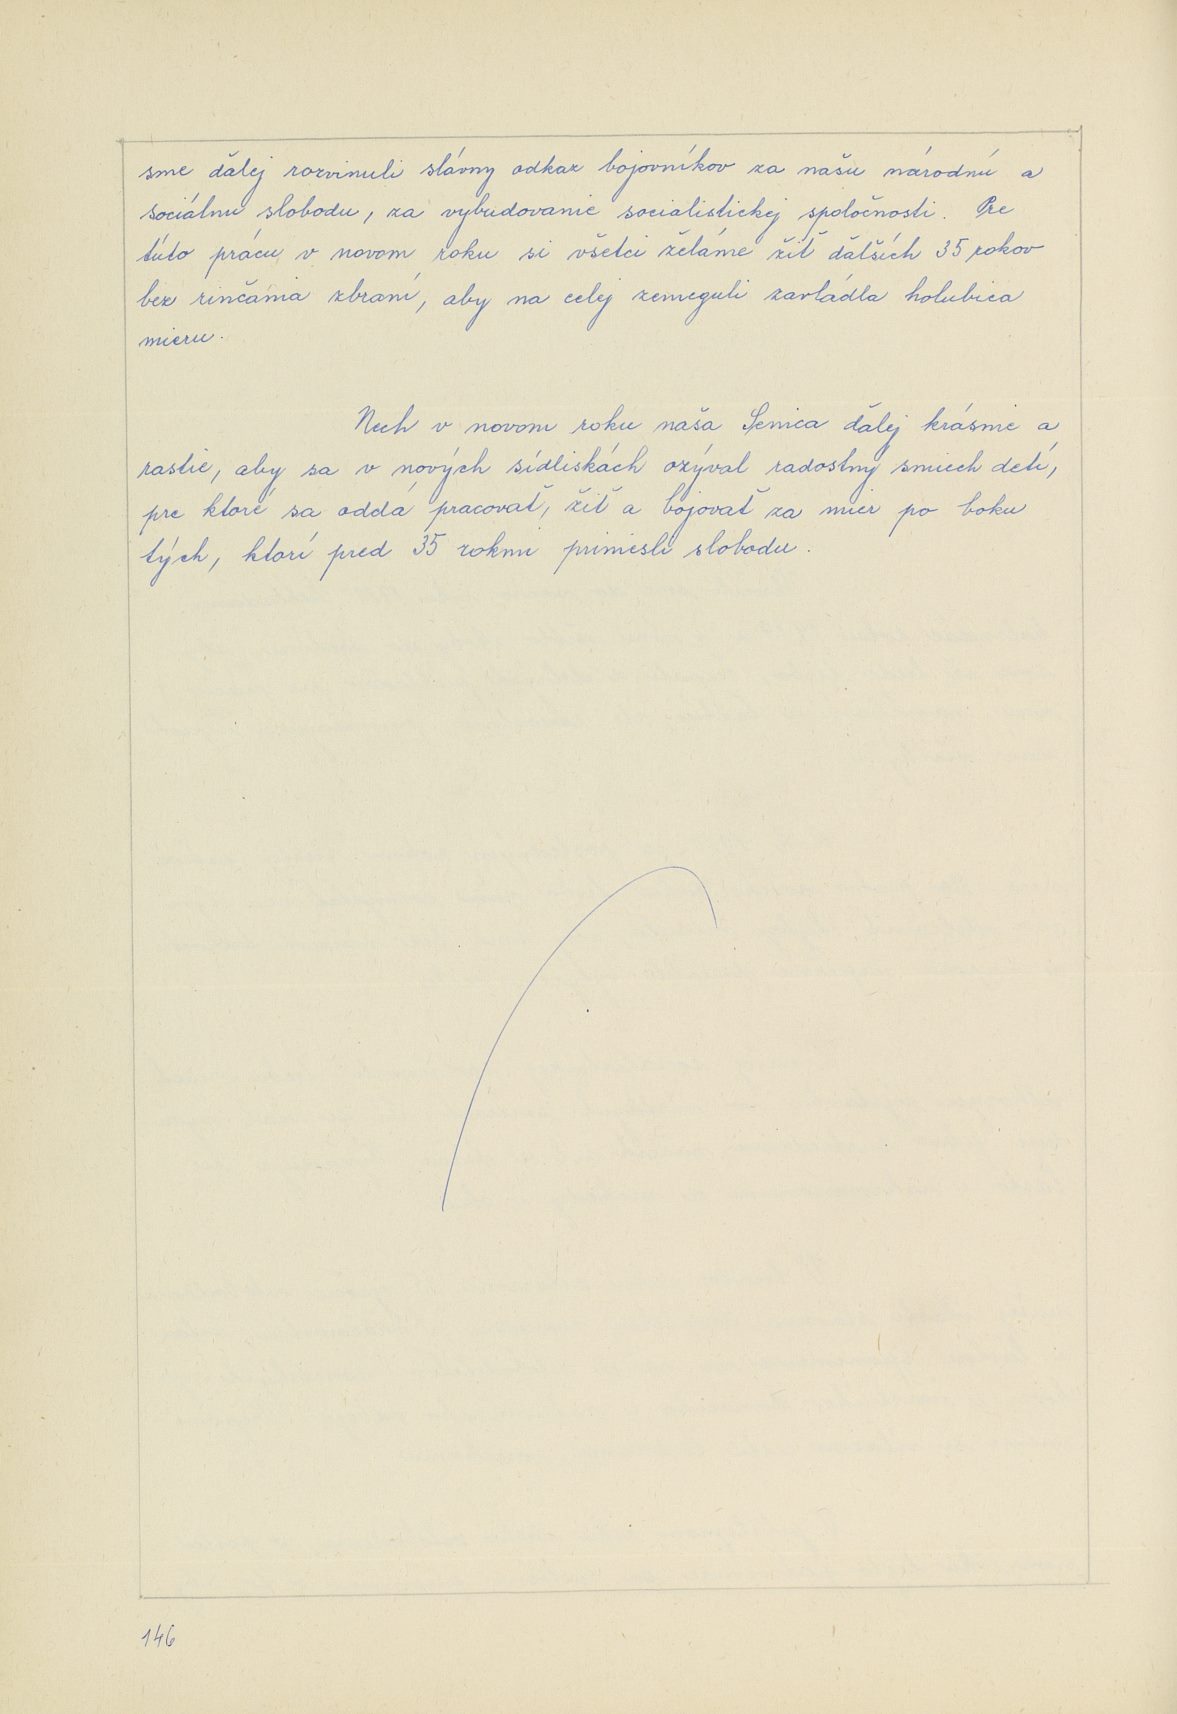 sme ďalej rozvinuli slávny odkaz bojovníkov za našu národnú a
sociálnu slobodu, za vybudovanie socialistickej spoločnosti. Pre
túto prácu v novom roku si všetci želáme žiť ďalších 35 rokov
bez rinčania zbraní, aby na celej zemeguli zavládla holubica
mieru.
Nech v novom roku naša Senica ďalej krásnie a
rastie, aby sa v nových sídliskách ozýval radostný smiech detí,
pre ktoré sa oddá pracovať, žiť a bojovať za mier po boku
tých, ktorí pred 35 rokmi priniesli slobodu.
146